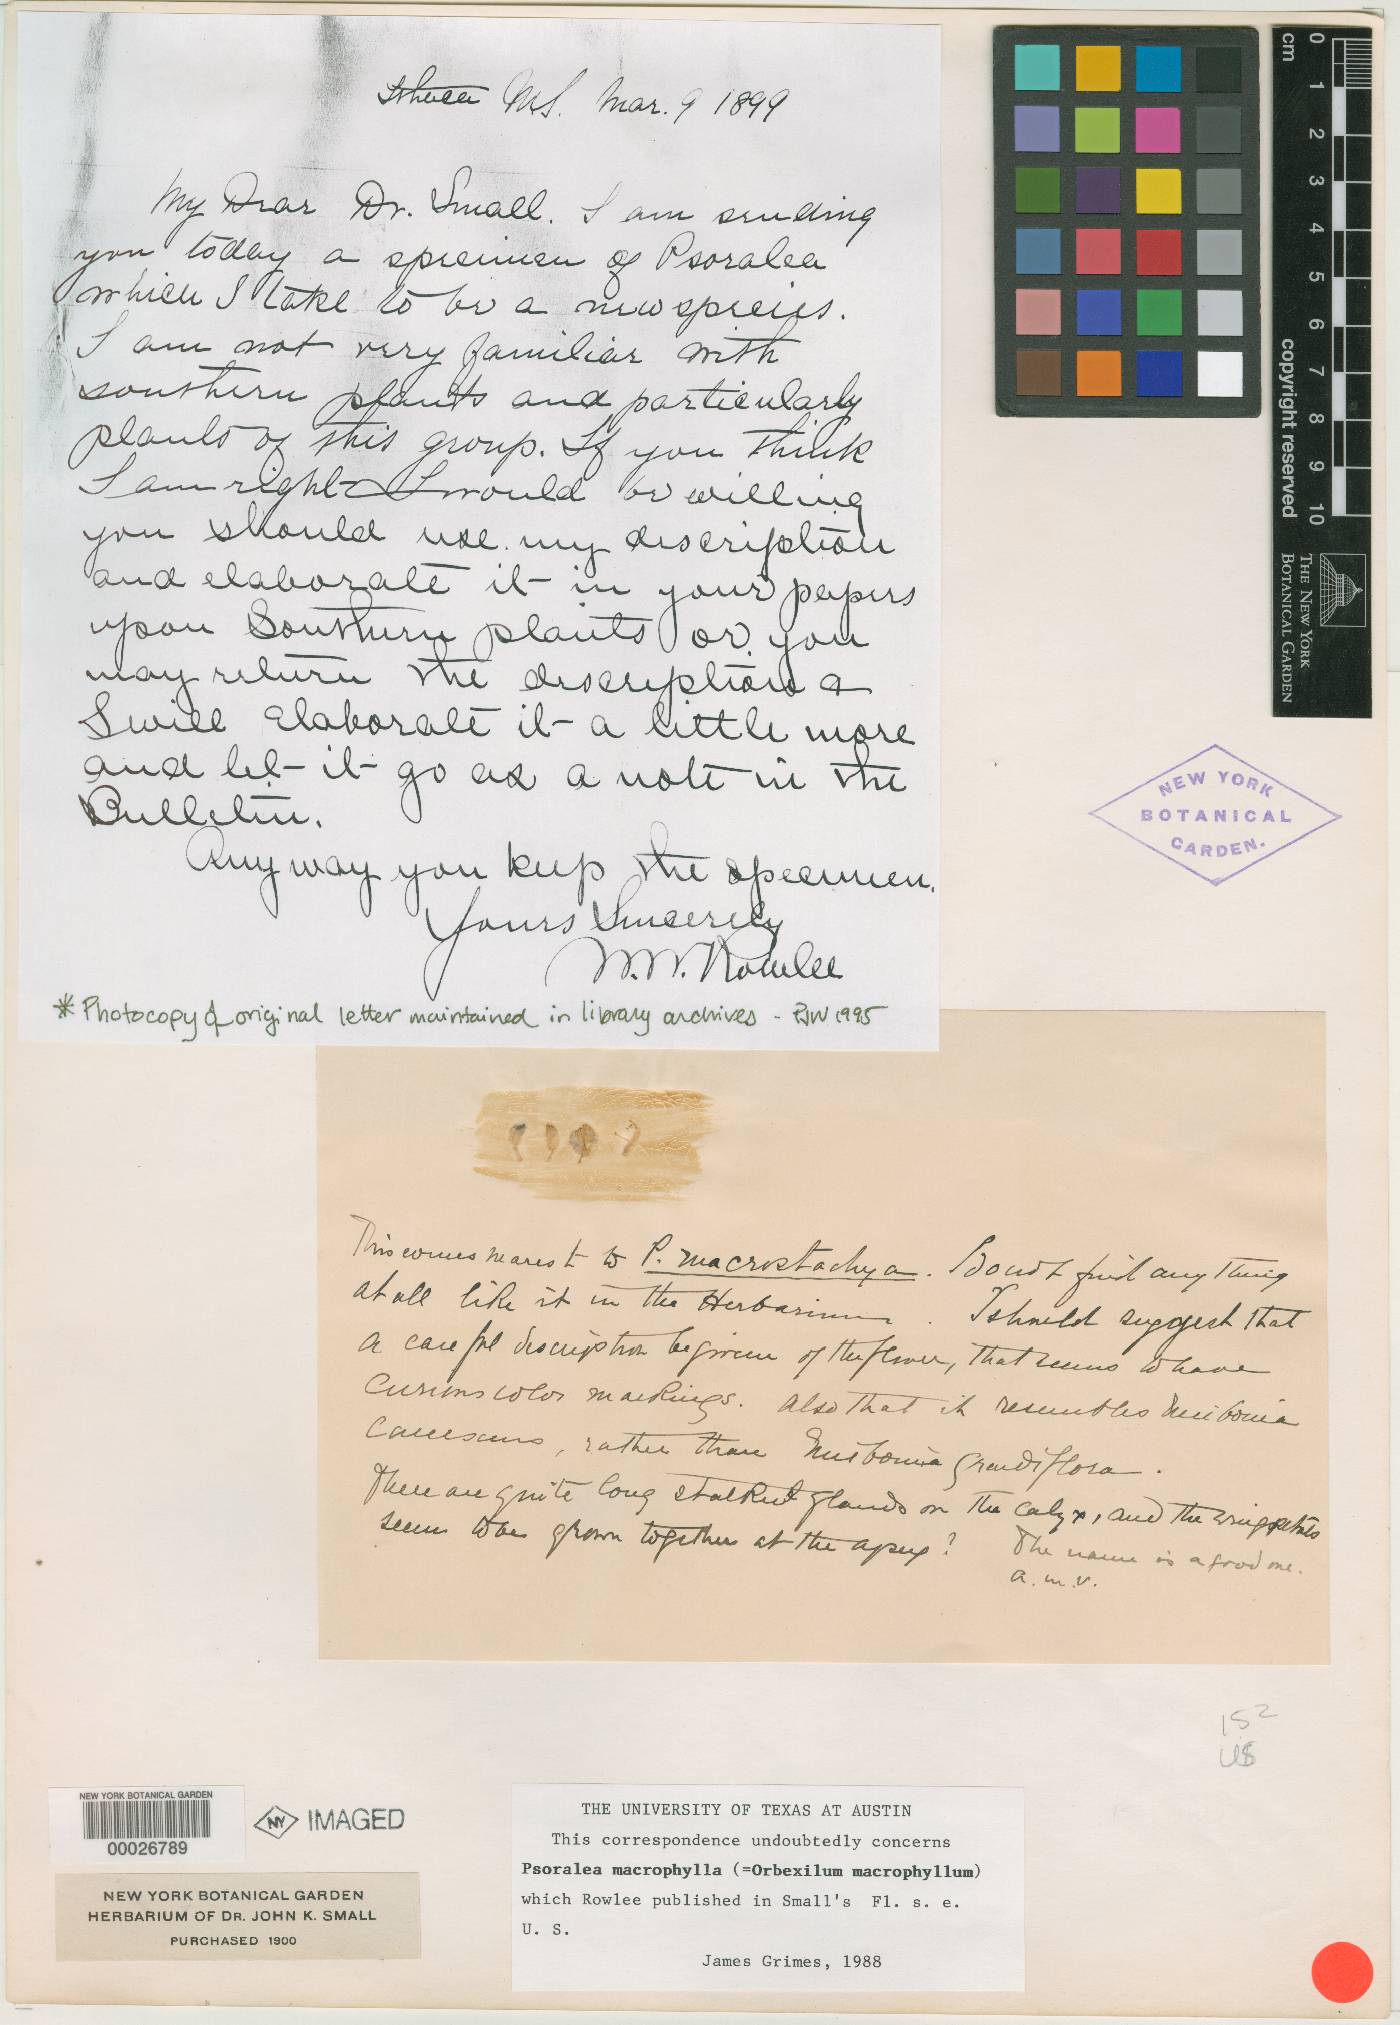 Ithaca N.Y. Mar. 9 1899
My Dear Dr. Small. I am sending
you today a specimen of Psoralea
which I take to be a new species.
I am not very familiar with
southern plants and particularly
plants of this group. If you think
I am right I would be willing
you should use my description
and elaborate it in your papers
upon Southern plants or you
may return the description &
I will elaborate it a little more
and let it go as a note in the
Bulletin.
Any way you keep the specimen.
Yours Sincerely
W.W. Rowlee
* Photocopy of original letter maintained in library archives - 1995
This comes nearest to P. macrostachya. I do not find any thing
at all like it in the Herbarium. I should suggest that
a careful description be given of the flower, that seems to have
curious color markings. Also that it resembles Meibomia
canescens, rather than Meibomia grandiflora.
There are quite long stalked glands on the calyx, and the wing petals
seem to be grown together at the apex? The name is a good one.
a. m. v.
NEW YORK
BOTANICAL
GARDEN.
cm 0 1 2 3 4 5 6 7 8 9 10
copyright reserved
THE NEW YORK
BOTANICAL GARDEN
15 2
US
NEW YORK BOTANICAL GARDEN
00026789
NY IMAGED
NEW YORK BOTANICAL GARDEN
HERBARIUM OF DR. JOHN K. SMALL
PURCHASED 1900
THE UNIVERSITY OF TEXAS AT AUSTIN
This correspondence undoubtedly concerns
Psoralea macrophylla (=Orbexilum macrophyllum)
which Rowlee published in Small's Fl. s. e.
U. S.
James Grimes, 1988